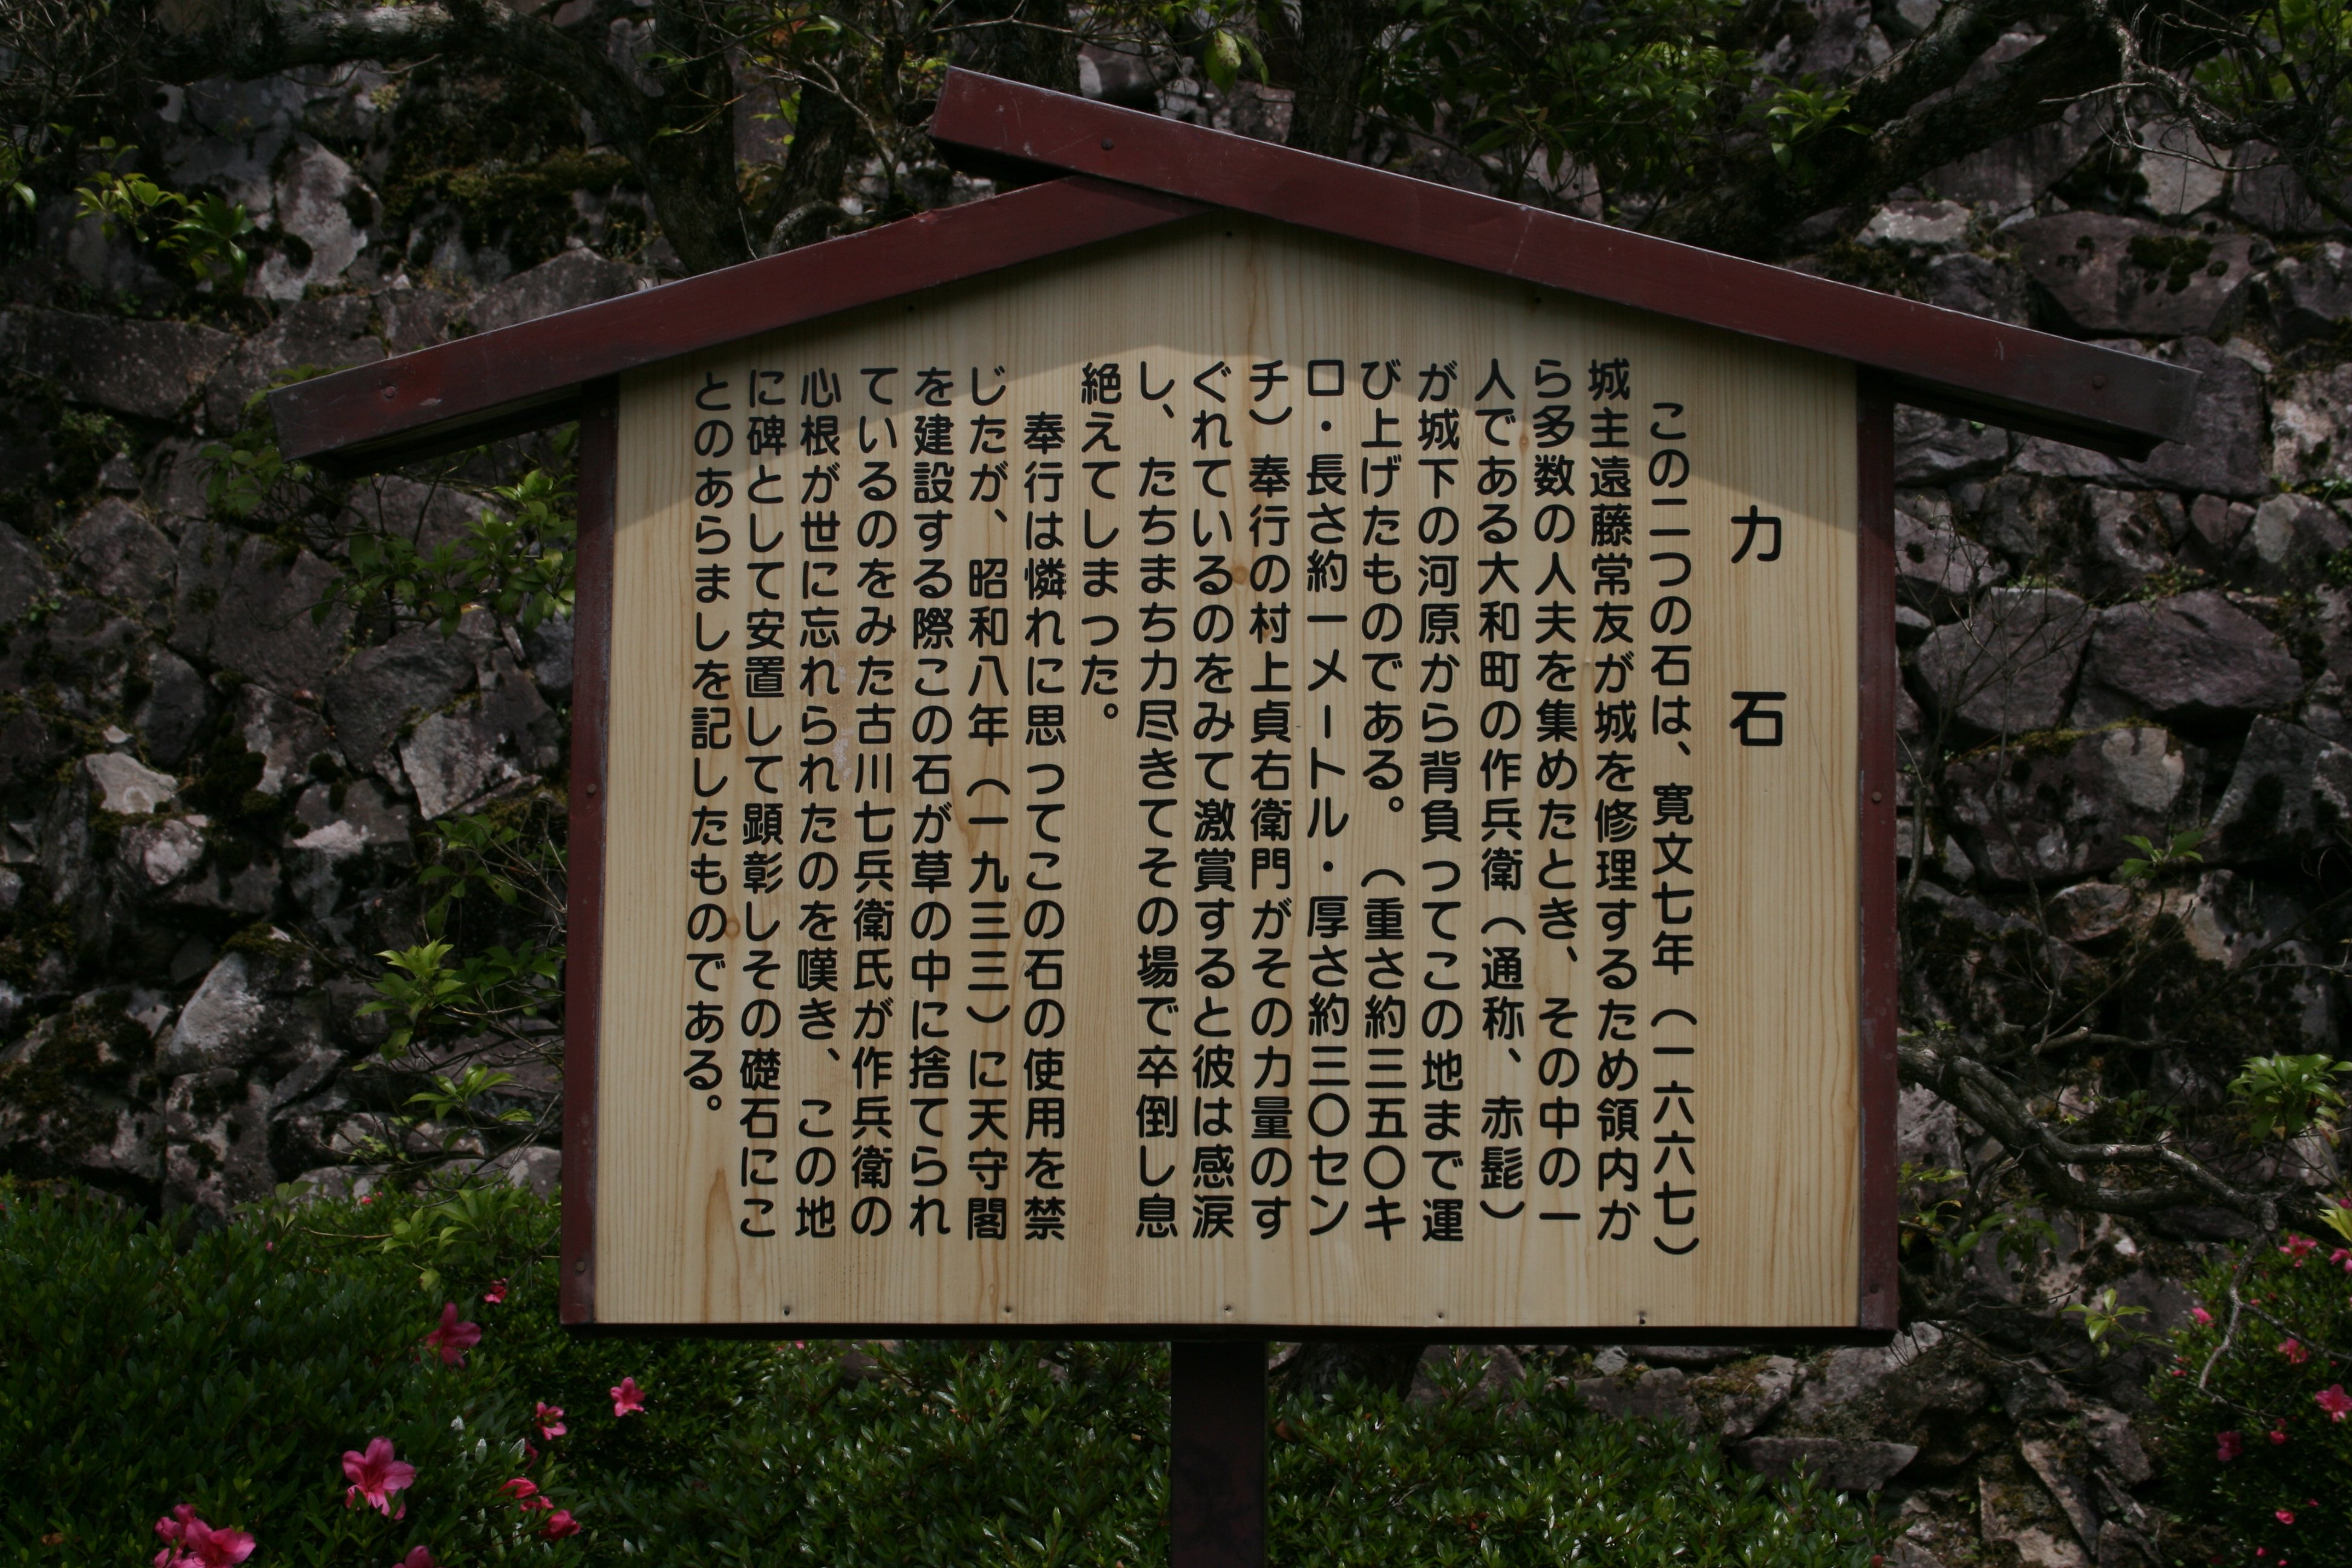 力石
この二つの石は、寛文七年（一六六七）
城主遠藤常友が城を修理するため領内か
ら多数の人夫を集めたとき、その中の一
人である大和町の作兵衛（通称、赤髭）
が城下の河原から背負ってこの地まで運
び上げたものである。（重さ約三五〇キ
ロ・長さ約一メートル・厚さ約三〇セン
チ）奉行の村上貞右衛門がその力量のす
ぐれているのをみて激賞すると彼は感涙
し、たちまち力尽きてその場で卒倒し息
絶えてしまった。
奉行は憐れに思ってこの石の使用を禁
じたが、昭和八年（一九三三）に天守閣
を建設する際この石が草の中に捨てられ
ているのをみた古川七兵衛氏が作兵衛の
心根が世に忘れられたのを嘆き、この地
に碑として安置して顕彰しその礎石にこ
とのあらましを記したものである。